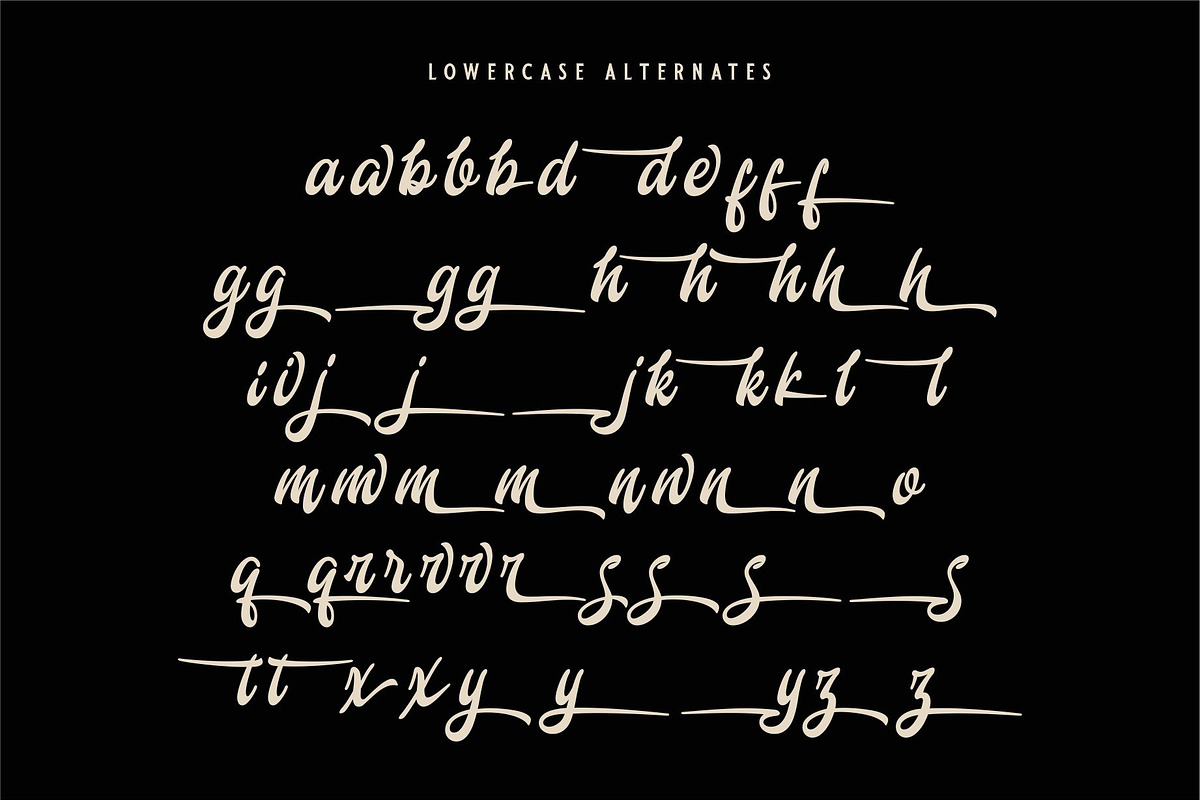 LOWERCASE ALTERNATES
aabbbd defff
gg gg h h hh h
iij j jk kk l l
mmm m nnn n o
q qrrrrr ss s s
tt xxy y yz z